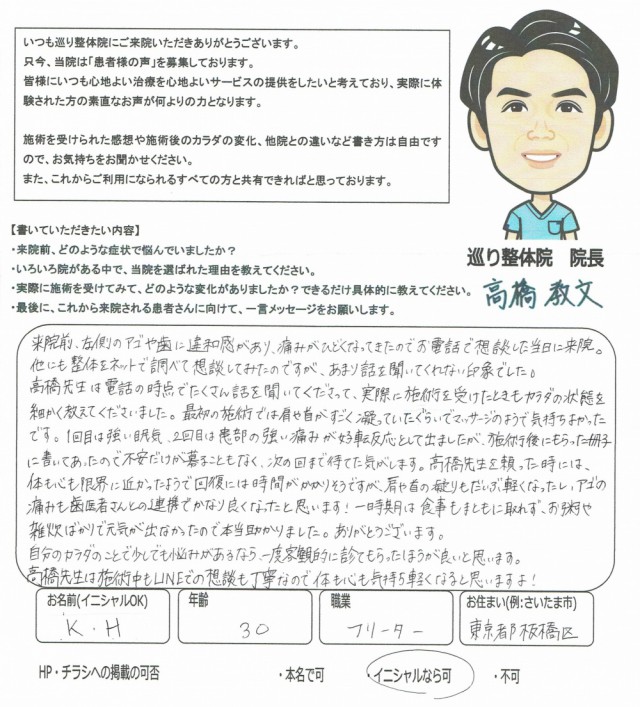 いつも巡り整体院にご来院いただきありがとうございます。
只今、当院は「患者様の声」を募集しております。
皆様にいつも心地よい治療を心地よいサービスの提供をしたいと考えており、実際に体
験された方の素直なお声が何よりの力となります。
施術を受けられた感想や施術後のカラダの変化、他院との違いなど書き方は自由です
ので、お気持ちをお聞かせください。
また、これからご利用になられるすべての方と共有できればと思っております。
【書いていただきたい内容】
・来院前、どのような症状で悩んでいましたか？
・いろいろ院がある中で、当院を選ばれた理由を教えてください。
・実際に施術を受けてみて、どのような変化がありましたか？できるだけ具体的に教えてください。
・最後に、これから来院される患者さんに向けて、一言メッセージをお願いします。
巡り整体院 院長
高橋 教文
来院前、左側のアゴや歯に違和感があり、痛みがひどくなってきたのでお電話で想談した当日に来院。
他にも整体をネットで調べて想談してみたのですが、あまり話を聞いてくれない印象でした。
高橋先生は電話の時点でたくさん話を聞いてくださって、実際に施術を受けたときもカラダの状態を
細かく教えてくださいました。最初の施術では肩や首がすごく凝っていたぐらいでマッサージのようで気持ちよかった
です。1回目は強い眠気、2回目は患部の強い痛みが好転反応として出ましたが、施術後にもらった冊子
に書いてあったので不安だけが募ることもなく、次の回まで待てた気がします。高橋先生を頼った時には、
体も心も限界に近かったようで回復には時間がかかりそうですが、肩や首の凝りもだいぶ軽くなったし、アゴの
痛みも歯医者さんとの連携でかなり良くなったと思います！一時期は食事もまともに取れず、お粥や
雑炊ばかりで元気が出なかったので本当助かりました。ありがとうございます。
自分のカラダのことで少しでも悩みがあるなら、一度客観的に診てもらったほうが良いと思います。
高橋先生は施術中もLINEでの想談も丁寧なので体も心も気持ち軽くなると思いますよ！
お名前(イニシャルOK)
K・H
年齢
30
職業
フリーター
お住まい(例:さいたま市)
東京都板橋区
HP・チラシへの掲載の可否 ・本名で可 ・イニシャルなら可 ・不可